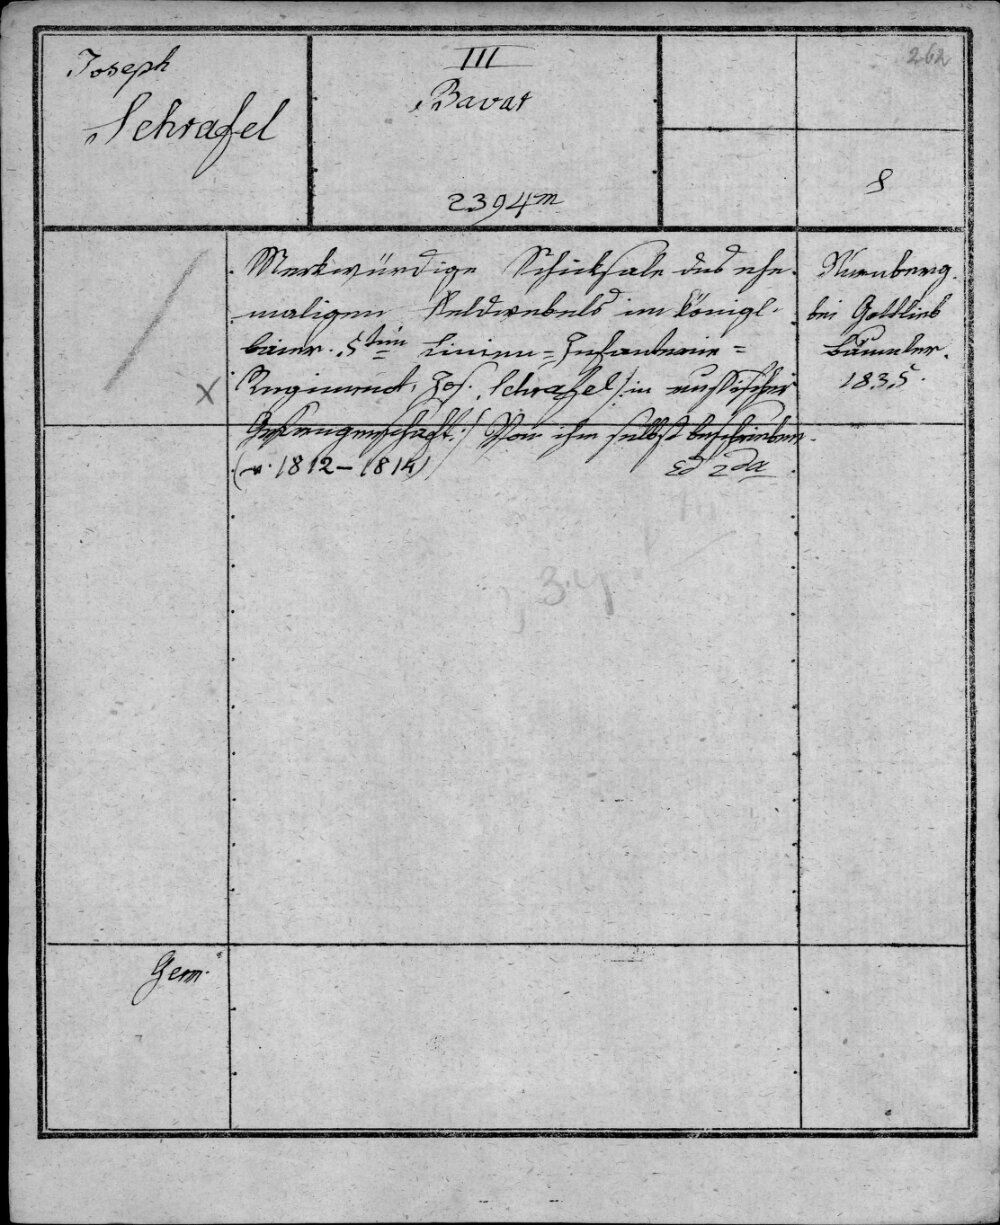 Joseph
Schrafel
III
Bavar
2394m
262
8
Merkwürdige Schicksale des ehe-
maligen Feldwebels im königl.
baier. 5ten Linien-Infanterie-
Regiment, Jos. Schrafel /: in russischer
Gefangenschaft :/ Von ihm selbst beschrieben.
(v. 1812–1814)
Ed 2da
Nürnberg.
bei Gottlieb
Bäumler.
1835.
X
Germ.